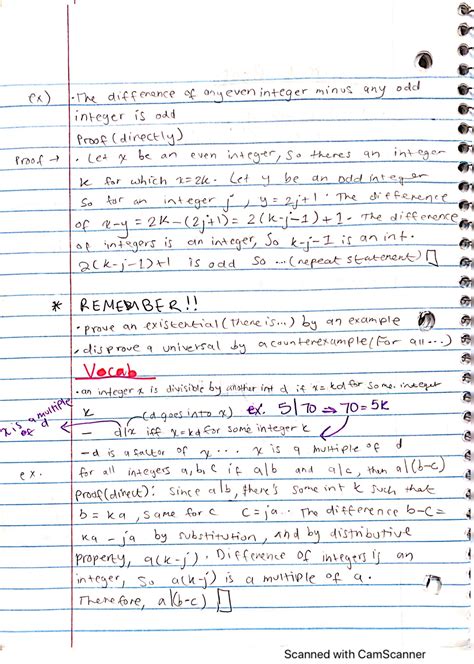 ex) • The difference of any even integer minus any odd
integer is odd
Proof (directly)
Proof → • Let x be an even integer, so theres an integer
k for which x=2k. Let y be an odd integer
so for an integer j, y=2j+1. The difference
of x-y = 2k-(2j+1) = 2(k-j-1)+1. The difference
of integers is an integer, so k-j-1 is an int.
2(k-j-1)+1 is odd so ... (repeat statement) □
* REMEMBER!!
• prove an existential (there is...) by an example
• disprove a universal by a counterexample (for all...)
Vocab
• an integer x is divisible by another int d if x=kd for some integer
k (d goes into x) ex. 5|70 ⇒ 70=5k
x is a multiple of d
– d|x iff x=kd for some integer k
– d is a factor of x ... x is a multiple of d
ex. for all integers a, b, c if a|b and a|c, then a|(b-c)
proof (direct): Since a|b, there's some int k such that
b = ka, same for c c=ja.. The difference b-c=
ka - ja by substitution, and by distributive
property, a(k-j). Difference of integers is an
integer, so a(k-j) is a multiple of a.
Therefore, a|(b-c) □
Scanned with CamScanner